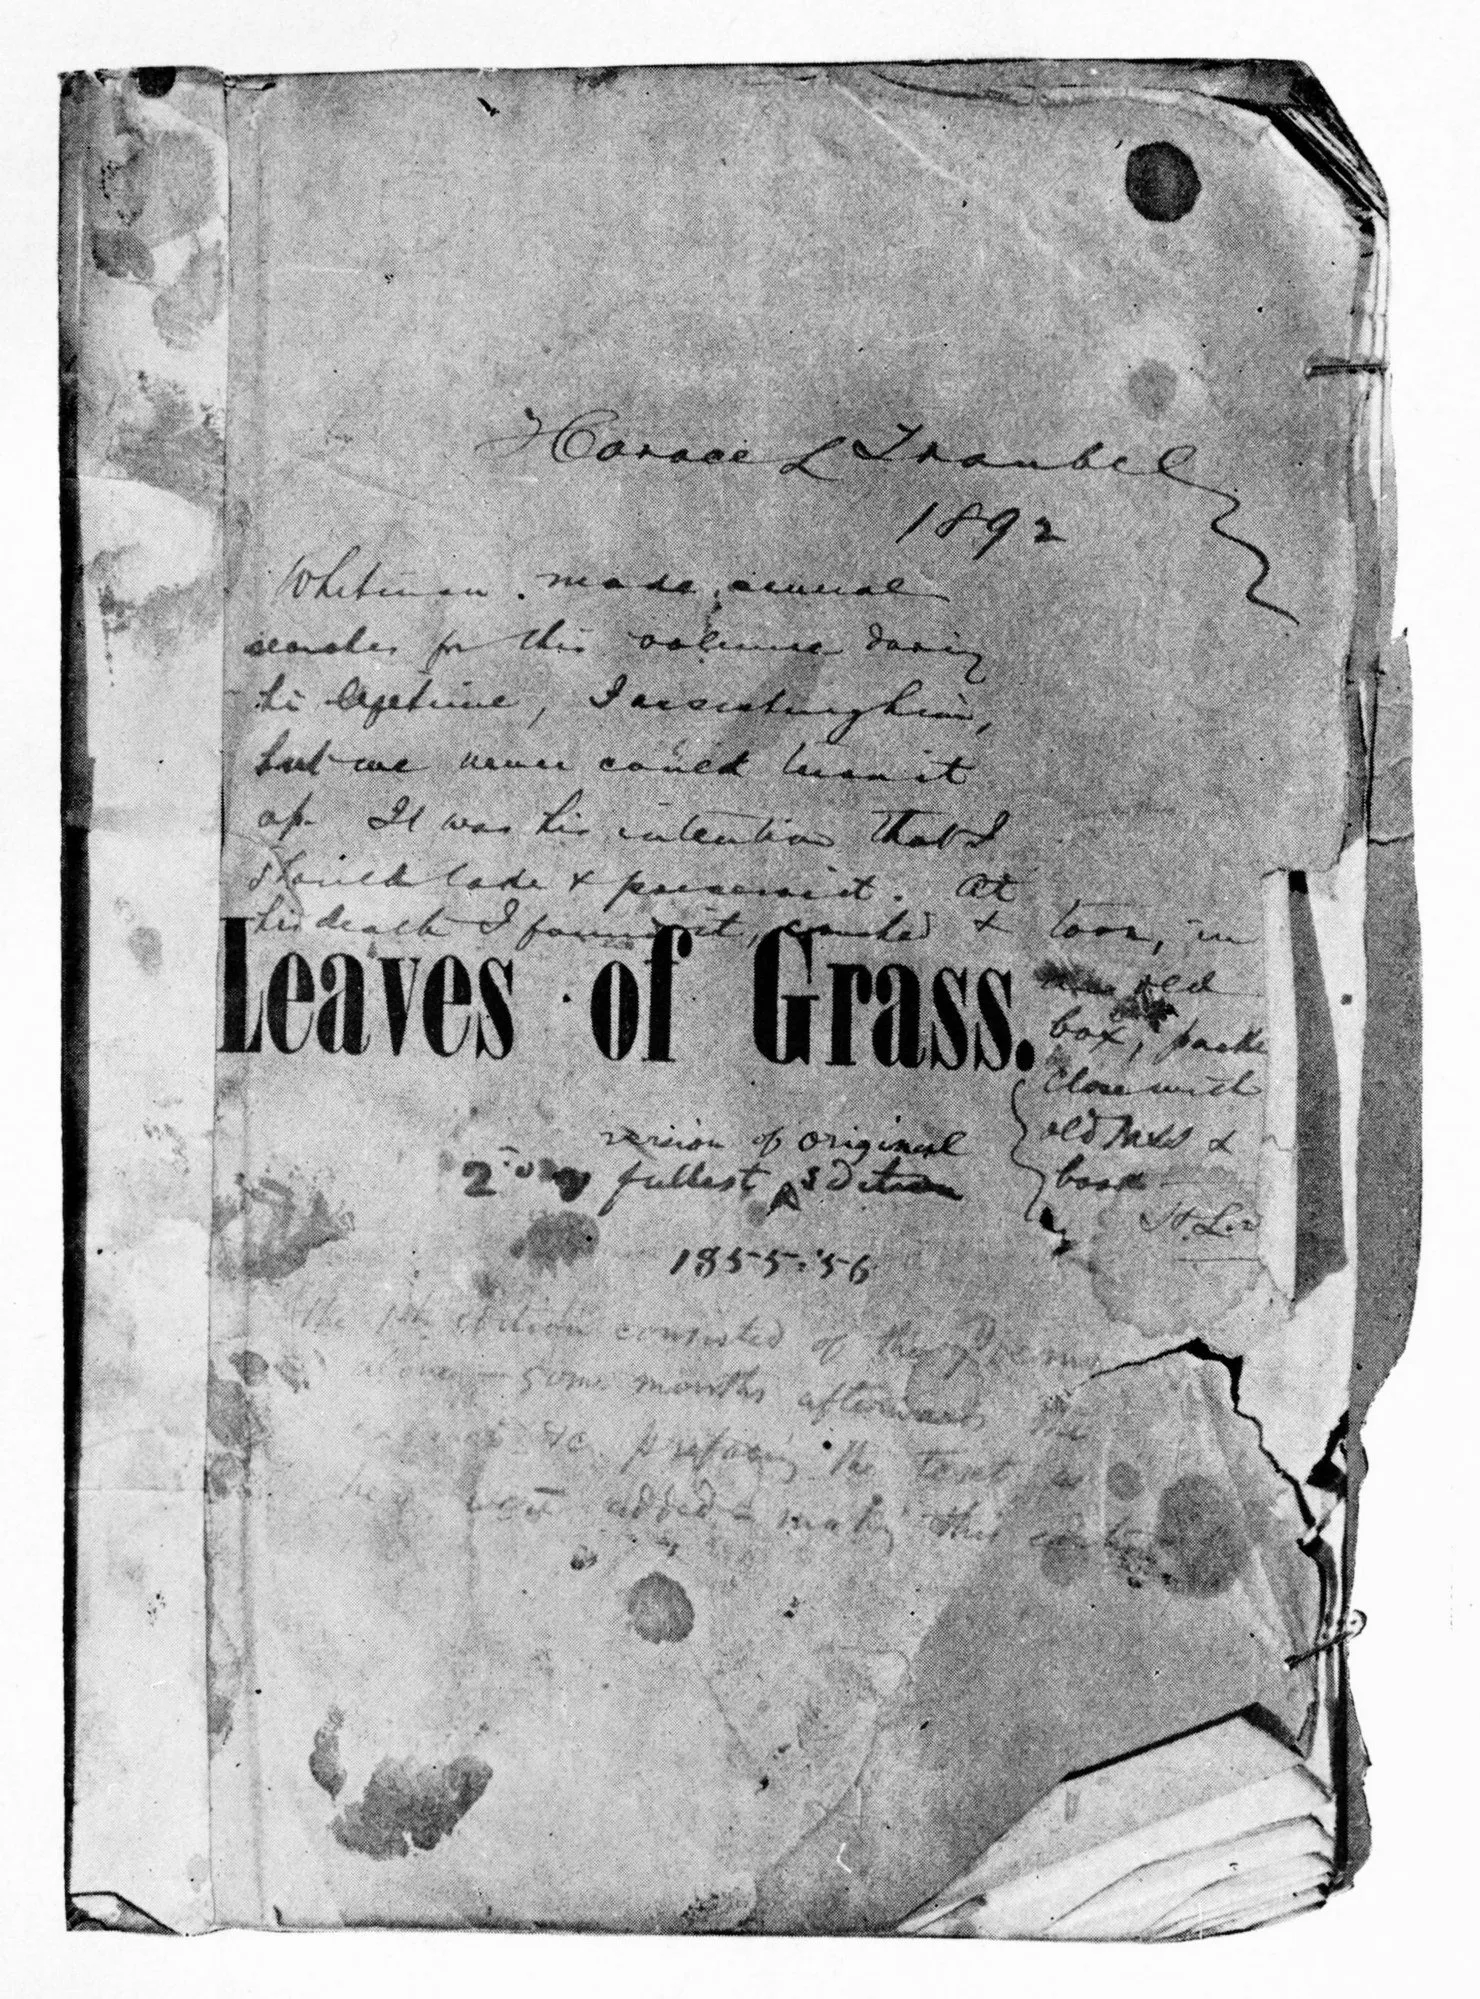 Horace L Traubel
1892
Whitman made several
searches for this volume during
his lifetime, I assisting him,
but we never could turn it
up. It was his intention that I
should take & preserve it. At
his death I found it, crushed & torn, in
an old
box, packed
close with
old MSS &
books
H. L.
Leaves of Grass.
version of original
2d fullest Edition
1855-'56
The 1st edition consisted of the Poems
alone — some months afterwards the
&c. prefacing the text as
were added — making the